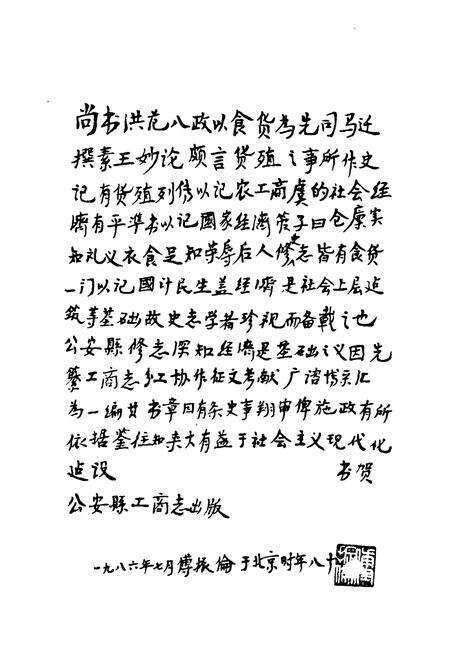 尚书洪范八政以食货为先司马迁
撰素王妙论颇言货殖之事所作史
记有货殖列传以记农工商虞的社会经
济有平準书以记國家经濟管子曰仓廪实
知礼义衣食足知荣辱后人修志皆有食货
一门以记國计民生盖经濟是社会上层建
筑等基础故史志学者珍视而备載之也
公安縣修志深知经濟是基础之义因先
纂工商志分工协作征文考献广谘博采汇
为一编其书章目有条史事翔审俾施政有所
依据鉴往知来大有益于社会主义现代化
建设 书贺
公安縣工商志出版
一九八六年七月傅振倫于北京时年八十